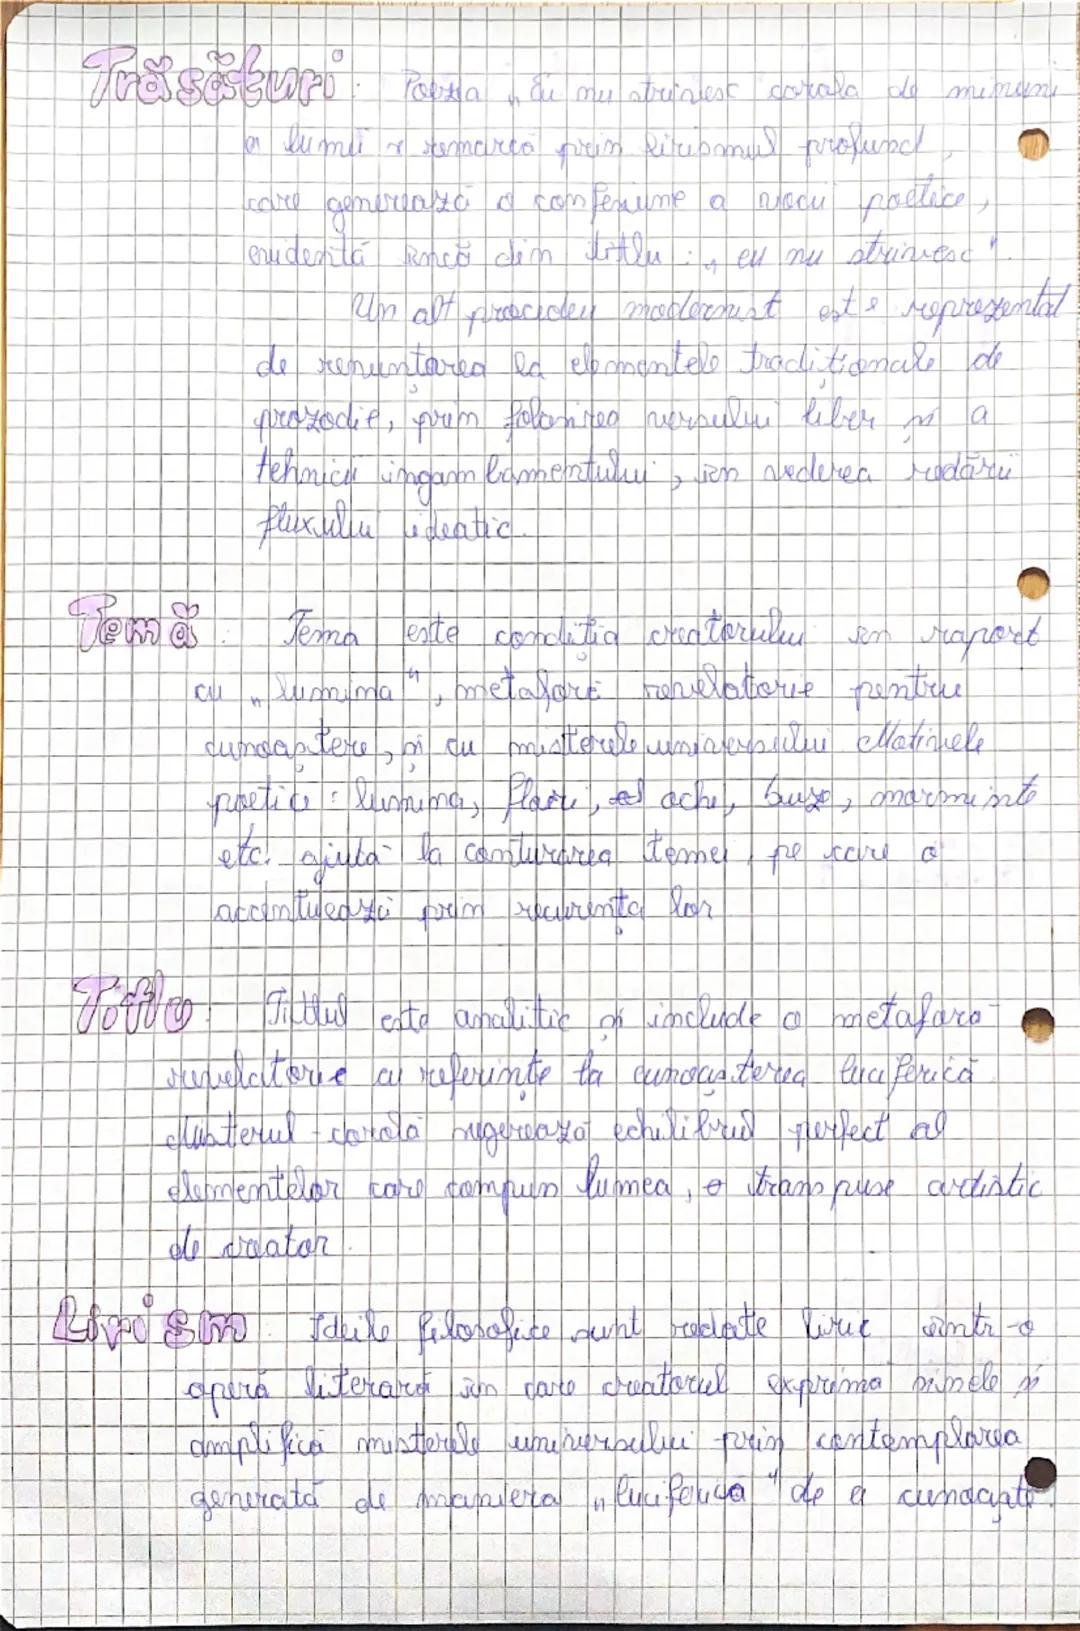 Trăsături: Poezia „Eu nu strivesc corola de minuni
a lumii" remarcă prin lirismul profund,
care generează o confesiune a vocii poetice,
evidentă încă din titlu: „eu nu strivesc".
Un alt procedeu modernist este reprezentat
de renunțarea la elementele tradiționale de
prozodie, prin folosirea versului liber și a
tehnicii ingambamentului, în vederea redării
fluxului ideatic.
Temă: Tema este condiția creatorului în raport
cu „lumina", metaforă revelatorie pentru
cunoaștere, și cu misterele universului. Motivele
poetice: lumina, flori, ochi, buze, morminte
etc. ajută la conturarea temei, pe care o
accentuează prin recurența lor
Titlu: Titlul este analitic și include o metaforă
revelatorie cu referințe la cunoașterea luciferică.
corolă sugerează echilibrul perfect al
elementelor care compun lumea, transpuse artistic
de creator.
Lirism: Ideile filosofice sunt redate liric într-o
operă literară în care creatorul exprimă și
amplifică misterele universului prin contemplarea
generată de maniera „luciferică" de a cunoaște.